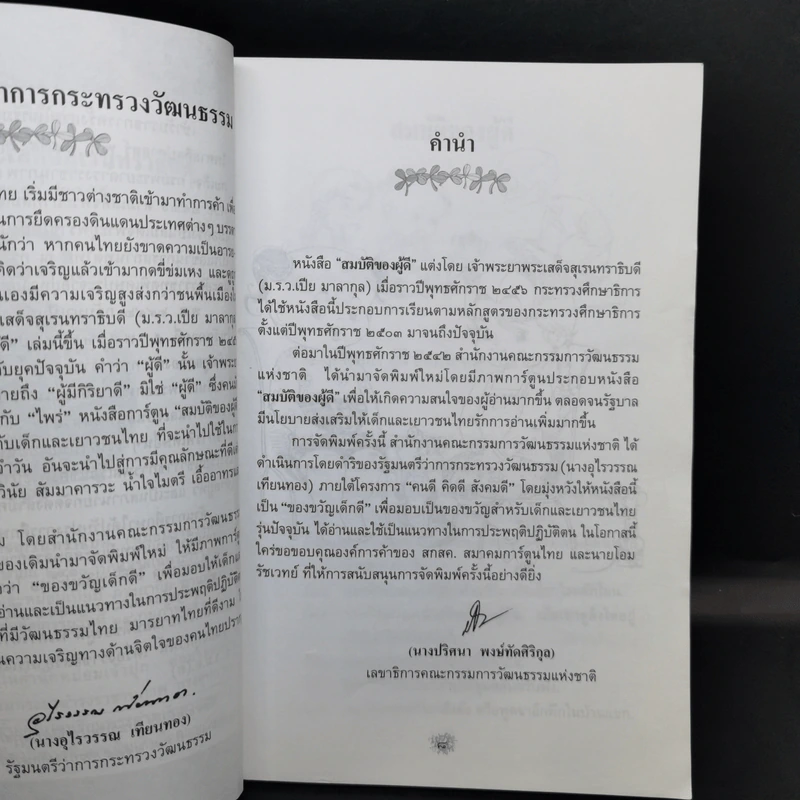 าการกระทรวงวัฒนธรรม
ทย เริ่มมีชาวต่างชาติเข้ามาทำการค้า เพื่
นการยึดครองดินแดนประเทศต่างๆ บรรด
นักว่า หากคนไทยยังขาดความเป็นอารย
คิดว่าเจริญแล้วเข้ามากดขี่ข่มเหง และดูถู
นเองมีความเจริญสูงส่งกว่าชนพื้นเมือง
เสด็จสุเรนทราธิบดี (ม.ร.ว.เปีย มาลากุล
ดี” เล่มนี้ขึ้น เมื่อราวปีพุทธศักราช ๒๔๕
กับยุคปัจจุบัน คำว่า “ผู้ดี” นั้น เจ้าพระ
ายถึง “ผู้มีกิริยาดี” มิใช่ “ผู้ดี” ซึ่งคน
กับ “ไพร่” หนังสือการ์ตูน “สมบัติของผู้
กับเด็กและเยาวชนไทย ที่จะนำไปใช้ใน
จำวัน อันจะนำไปสู่การมีคุณลักษณะที่ดี
วินัย สัมมาคารวะ น้ำใจไมตรี เอื้ออาทร
ม โดยสำนักงานคณะกรรมการวัฒนธร
ของเดิมนำมาจัดพิมพ์ใหม่ ให้มีภาพการ์ตู
ว่า “ของขวัญเด็กดี” เพื่อมอบให้เด็กแล
อ่านและเป็นแนวทางในการประพฤติปฏิบัติ
ที่มีวัฒนธรรมไทย มารยาทไทยที่ดีงาม
นความเจริญทางด้านจิตใจของคนไทยปรา
อุไรวรรณ เทียนทอง
(นางอุไรวรรณ เทียนทอง)
รัฐมนตรีว่าการกระทรวงวัฒนธรรม
คำนำ
หนังสือ “สมบัติของผู้ดี” แต่งโดย เจ้าพระยาพระเสด็จสุเรนทราธิบดี
(ม.ร.ว.เปีย มาลากุล) เมื่อราวปีพุทธศักราช ๒๔๕๖ กระทรวงศึกษาธิการ
ได้ใช้หนังสือนี้ประกอบการเรียนตามหลักสูตรของกระทรวงศึกษาธิการ
ตั้งแต่ปีพุทธศักราช ๒๕๐๓ มาจนถึงปัจจุบัน
ต่อมาในปีพุทธศักราช ๒๕๔๒ สำนักงานคณะกรรมการวัฒนธรรม
แห่งชาติ ได้นำมาจัดพิมพ์ใหม่โดยมีภาพการ์ตูนประกอบหนังสือ
“สมบัติของผู้ดี” เพื่อให้เกิดความสนใจของผู้อ่านมากขึ้น ตลอดจนรัฐบาล
มีนโยบายส่งเสริมให้เด็กและเยาวชนไทยรักการอ่านเพิ่มมากขึ้น
การจัดพิมพ์ครั้งนี้ สำนักงานคณะกรรมการวัฒนธรรมแห่งชาติ ได้
ดำเนินการโดยดำริของรัฐมนตรีว่าการกระทรวงวัฒนธรรม (นางอุไรวรรณ
เทียนทอง) ภายใต้โครงการ “คนดี คิดดี สังคมดี” โดยมุ่งหวังให้หนังสือนี้
เป็น “ของขวัญเด็กดี” เพื่อมอบเป็นของขวัญสำหรับเด็กและเยาวชนไทย
รุ่นปัจจุบัน ได้อ่านและใช้เป็นแนวทางในการประพฤติปฏิบัติตน ในโอกาสนี้
ใคร่ขอขอบคุณองค์การค้าของ สกสค. สมาคมการ์ตูนไทย และนายโอม
รัชเวทย์ ที่ให้การสนับสนุนการจัดพิมพ์ครั้งนี้อย่างดียิ่ง
(นางปริศนา พงษ์ทัดศิริกุล)
เลขาธิการคณะกรรมการวัฒนธรรมแห่งชาติ